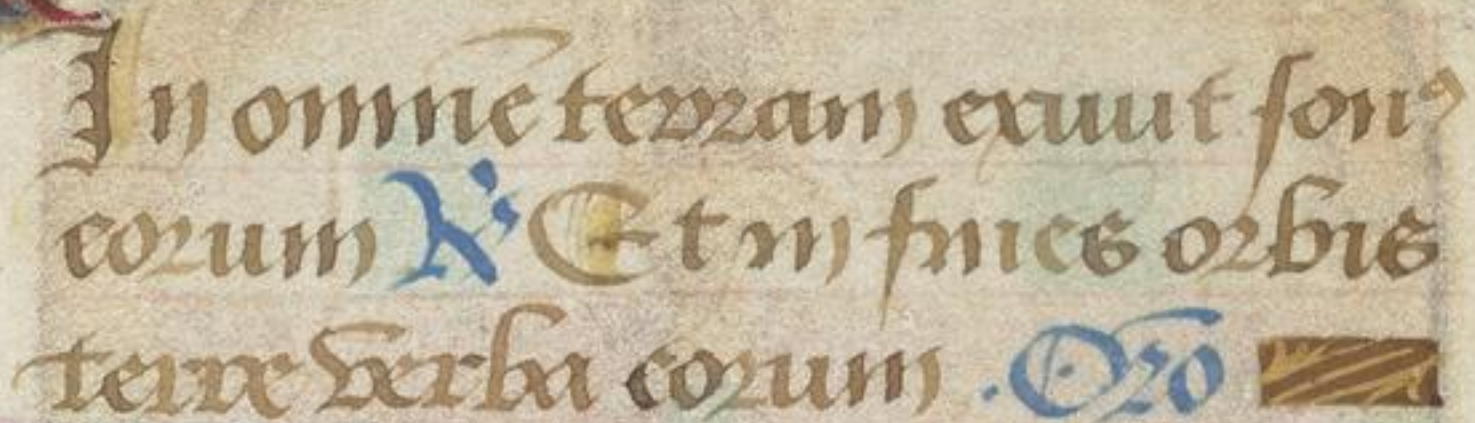 In omnē terram exiuit sonꝰ
eorum ℟ Et in fines orbis
terre verba eorum . Oro